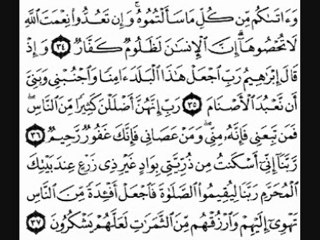 وَءَاتَىٰكُم مِّن كُلِّ مَا سَأَلْتُمُوهُ ۚ وَإِن تَعُدُّوا۟ نِعْمَتَ ٱللَّهِ
لَا تُحْصُوهَآ ۗ إِنَّ ٱلْإِنسَـٰنَ لَظَلُومٌ كَفَّارٌ ٣٤ وَإِذْ
قَالَ إِبْرَٰهِيمُ رَبِّ ٱجْعَلْ هَـٰذَا ٱلْبَلَدَ ءَامِنًا وَٱجْنُبْنِى وَبَنِىَّ
أَن نَّعْبُدَ ٱلْأَصْنَامَ ٣٥ رَبِّ إِنَّهُنَّ أَضْلَلْنَ كَثِيرًا مِّنَ ٱلنَّاسِ ۖ
فَمَن تَبِعَنِى فَإِنَّهُۥ مِنِّى ۖ وَمَنْ عَصَانِى فَإِنَّكَ غَفُورٌ رَّحِيمٌ ٣٦
رَّبَّنَآ إِنِّىٓ أَسْكَنتُ مِن ذُرِّيَّتِى بِوَادٍ غَيْرِ ذِى زَرْعٍ عِندَ بَيْتِكَ
ٱلْمُحَرَّمِ رَبَّنَا لِيُقِيمُوا۟ ٱلصَّلَوٰةَ فَٱجْعَلْ أَفْـِٔدَةً مِّنَ ٱلنَّاسِ
تَهْوِىٓ إِلَيْهِمْ وَٱرْزُقْهُم مِّنَ ٱلثَّمَرَٰتِ لَعَلَّهُمْ يَشْكُرُونَ ٣٧